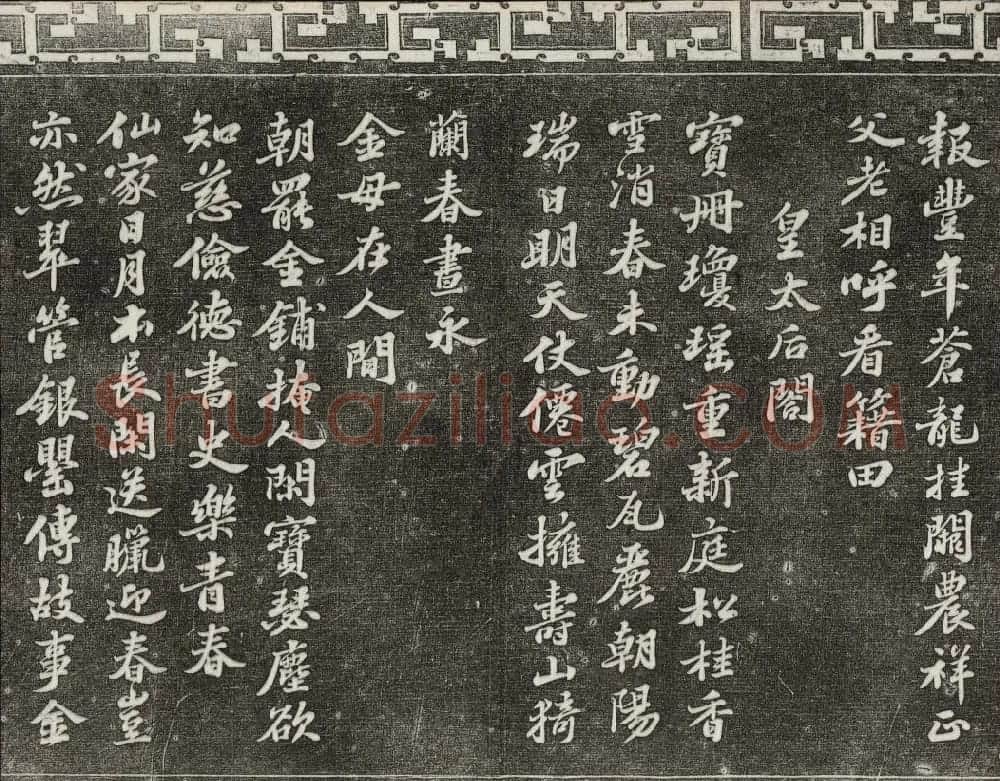 報豐年蒼龍挂闕農祥正
父老相呼看籍田
皇太后閤
寶冊瓊瑤重新庭松桂香
雪消春未動碧瓦麗朝陽
瑞日明天仗僊雲擁壽山猗
蘭春晝永
金母在人間
朝罷金鋪掩人閑寶瑟塵欲
知慈儉德書史樂青春
仙家日月本長閑送臘迎春豈
亦然翠管銀罌傳故事金
shufaziliao.com